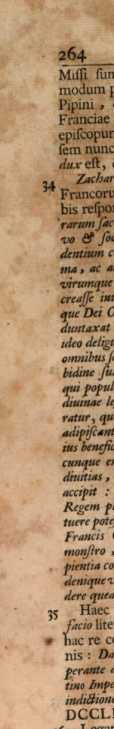 264
Missi sun
modum p
Pipini,
Franciae
episcopun
sem nunc
dux est,
34 Zachar
Francoru
bis respo
rarum sac
vo & soc
dentium c
ma, ac a
virumque
creasse int
que Dei O
duntaxat
ideo delig
omnibus s
bidine su
qui popul
diuinae le
ratur, qu
adipiscant
ius benefic
cunque en
diuitias,
accipit :
Regem p
tuere pote
Francis
monstro,
pientia co
denique v
dere quea
35 Haec
facio lite
hac re co
nis : Da
perante a
tino Impe
indictione
DCCLI